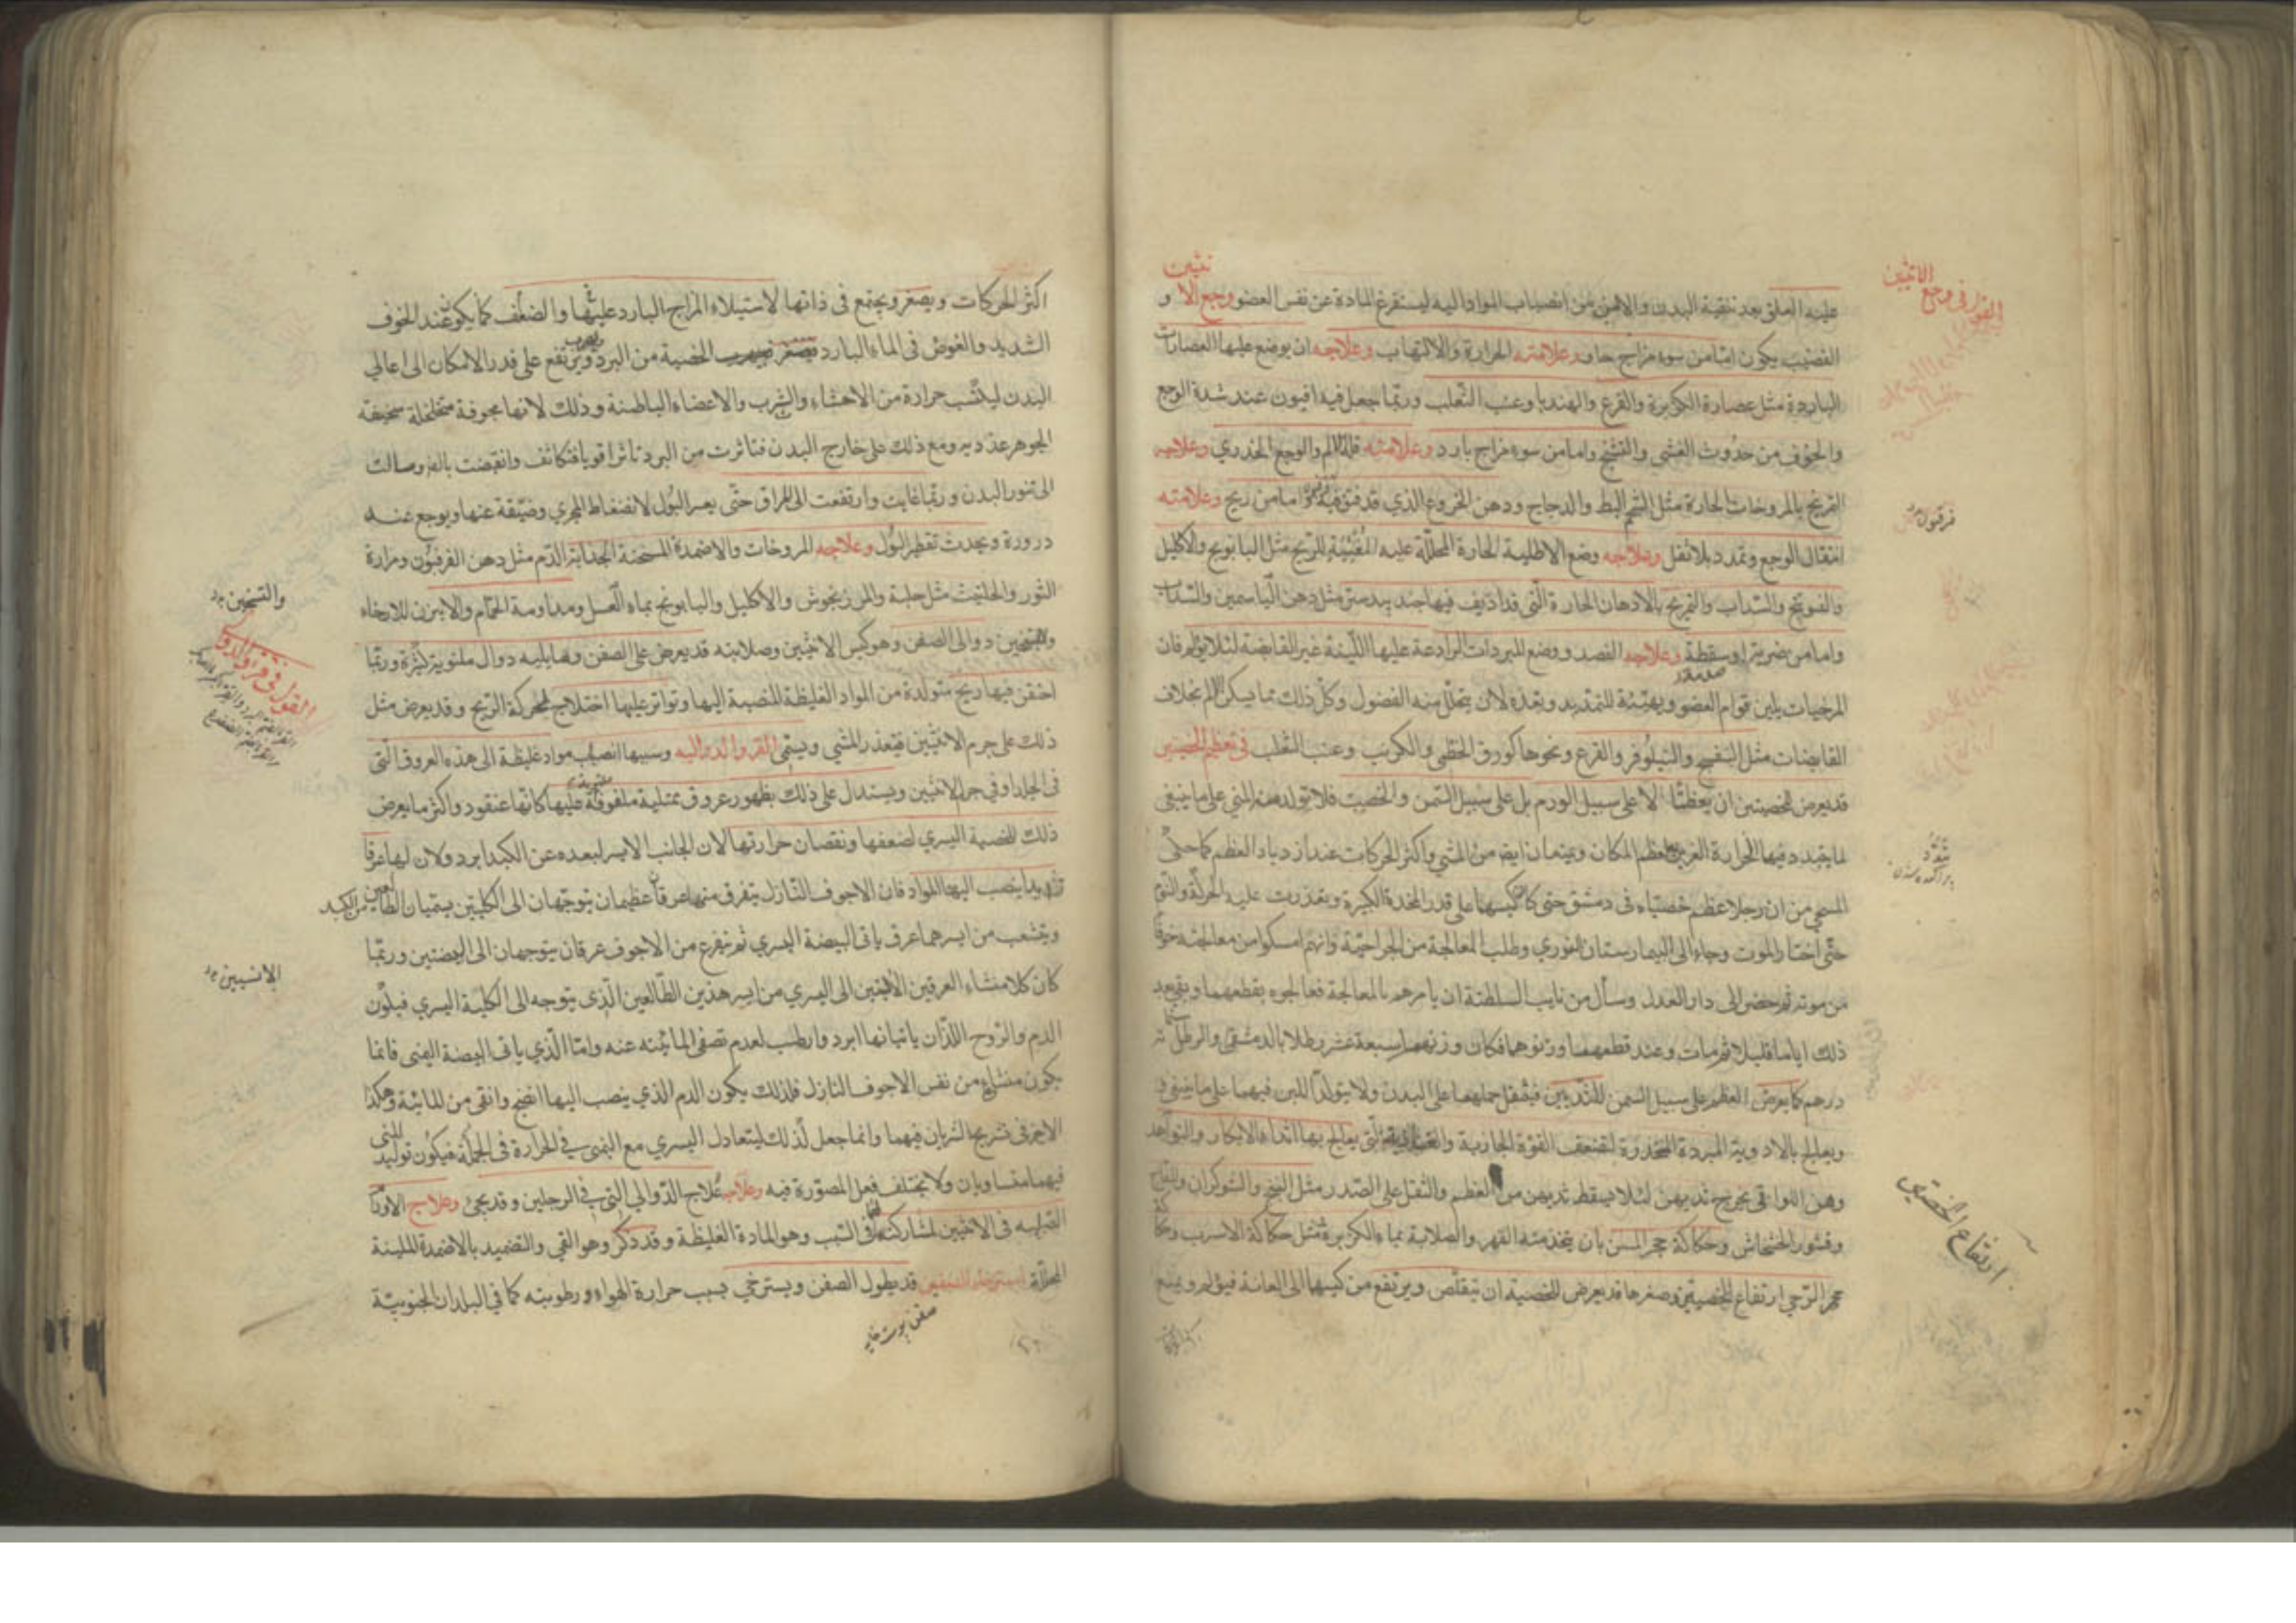 القول في وجع الانثيين
عليه العلق بعد تنقية البدن والامن من انصباب المواد اليه ليستفرغ المادة عن نفس العضو وجع الانثيين و
القضيب يكون اما من سوء مزاج حار وعلامته الحرارة والالتهاب وعلاجه ان يوضع عليها العصارات
الباردة مثل عصارة الكزبرة والقرع والهندبا وعنب الثعلب وربما جعل فيه افيون عند شدة الوجع
والخوف من حدوث الغشى والتشنج واما من سوء مزاج بارد وعلامته قلة الالم والوجع الخدري وعلاجه
التمريخ بالمروخات الحارة مثل الشحم البط والدجاج ودهن الخروع الذي قد فتق فيه واما من ريح وعلامته
انتقال الوجع وتمدد بلا ثقل وعلاجه وضع الاطلية الحارة المحللة عليه المفشية للريح مثل البابونج والاكليل
والفوتنج والسداب والتمريخ بالادهان الحارة التي قد اديف فيها جند بيدستر مثل دهن الياسمين والسداب
واما من ضربة او سقطة وعلاجه الفصد ووضع المبردات الرادعة عليها اللينة غير القابضة لئلا يؤلم فان
المرخيات يلين قوام العضو ويهيئه للتمديد وبعده لان يتحلل منه الفضول وكل ذلك مما يسكن الالم بخلاف
القابضات مثل البنفسج والنيلوفر والقرع ونحوها كورق الخطمى والكرنب وعنب الثعلب في تعظم الخصيتين
قد يعرض للخصيتين ان يعظمتا لا على سبيل الورم بل على سبيل السمن والخصب فلا تولدهن المني على ما ينبغي
لما يتبدد فيها الحرارة الغريزية لعظم المكان ويمنعان ايضا من المشي واكثر الحركات عند ازدياد العظم كما حكى
المسيحي من ان رجلا عظم خصيتاه في دمشق حتى كان كيسها على قدر المخدة الكبيرة وتعذرت عليه الحركة والنوم
حتى اختار الموت وجاء الى البيمارستان النوري وطلب المعالجة من الجراحية وانهم امسكوا من معالجته خوفا
من موته ثم حضر الى دار العدل وسأل من نايب السلطنة ان يامرهم بالمعالجة فعالجوه بقطعهما وبقي بعد
ذلك اياما قليلا ثم مات وعند قطعهما وزنوهما فكان وزنهما سبعة عشر رطلا بالدمشقي والرطل
درهم كما يعرض العظم على سبيل السمن للثديين فيثقل حملهما على البدن ولا يتولد اللبن فيهما على ما ينبغي و
ويعالج بالادوية المبردة المخدرة لتضعف القوة الجاذبة والتي يعالج بها اثداء الابكار والنواهد
وهن اللواتي يخرج ثديهن لئلا يسقط ثديهن من العظم والثقل على الصدر مثل البنج والشوكران
وقشور الخشخاش وحكاكة حجر المسن بان يتخذ منه الفهر والصلاية بماء الكزبرة مثل حكاكة الاسرب
حجر الرحي ارتفاع الخصيتين وصغرها قد يعرض للخصية ان يتقلص ويرتفع من كيسها الى العانة فيؤلم ويمنع
ارتفاع الخصيتين
اكثر الحركات ويصغر ويجتمع في ذاتها لاستيلاء المزاج البارد عليها والضعف كما يكون عند الخوف
الشديد والغوص في الماء البارد فيصغر فيهرب الخصية من البرد ويرتفع على قدر الامكان الى اعالي
البدن ليكتسب حرارة من الاحشاء والثرب والاعضاء الباطنة وذلك لانها مجوفة متخلخلة سخيفة
الجوهر غددية ومع ذلك على خارج البدن فتاثرت من البرد تاثرا قويا فتكاثف وانقبضت بالمد وسالت
الى تنور البدن وربما غابت وارتفعت الى المراق حتى يعسر البول لانضغاط المجري وضيقة عنها ويوجع عند
دروره ويحدث تقطير البول وعلاجه المروخات والاضمدة المسخنة الجذابة الدم مثل دهن الفرفيون ومرارة
الثور والحلتيت مثل حلبة والمرزنجوش والاكليل والبابونج بماء العسل ومداومة الحمام والابزن للارخاء
والتسخين دوالى الصفن وهو كيس الانثيين وصلابته قد يعرض على الصفن وما يليه دوال ملتوية كثيرة وربما
احتقن فيها ريح متولدة من المواد الغليظة المنصبة اليها وتواتر عليها اختلاج لحركة الريح وقد يعرض مثل
ذلك على جرم الانثيين فيتعذر المشي ويسمى القرو والدوالية وسببها انصباب مواد غليظة الى هذه العروق التي
في الجلد او في جرم الانثيين ويستدل على ذلك بظهور عروق ممتلية ملفوفة عليها كانها عنقود واكثر ما يعرض
ذلك للخصية اليسري لضعفها ونقصان حرارتها لان الجانب الايسر لبعده عن الكبد ابرد ولان لها عرقا
زايدا ينصب اليها المواد فان الاجوف النازل يتفرق منها عرقان عظيمان يتوجهان الى الكليتين يسميان الطالعين من الكبد
ويتشعب من ايسرهما عرق ياتى البيضة اليسري ثم يتفرع من الاجوف عرقان يتوجهان الى البيضتين وربما
كان كلا منشاء العرقين الاتيين الى اليسري من ايسر هذين الطالعين الذي يتوجه الى الكلية اليسري فيكون
الدم والروح اللذان ياتيانها ابرد وارطب لعدم تصفى المائية عنه واما الذي ياتى البيضة اليمنى فانما
يكون منشاؤه من نفس الاجوف النازل فلذلك يكون الدم الذي ينصب اليها انضج وانقى من المائية وهكذا
الامر في تشريح الشريان فيهما وانما جعل لذلك ليتعادل اليسري مع اليمنى في الحرارة في الجملة فيكون توليد المني
فيهما متساويان ولا يختلف فعل المصورة فيه وعلاجه علاج الدوالي التي في الرجلين وقد يجئ وعلاج
الصلبه في الانثيين لمشاركتها في السبب وهو المادة الغليظة وقد ذكر وهو القي والتضميد بالاضمدة الملينة
المحللة استرخاء الصفن قد يطول الصفن ويسترخي بسبب حرارة الهواء ورطوبته كما في البلدان الجنوبية
والتسخين
الانثيين